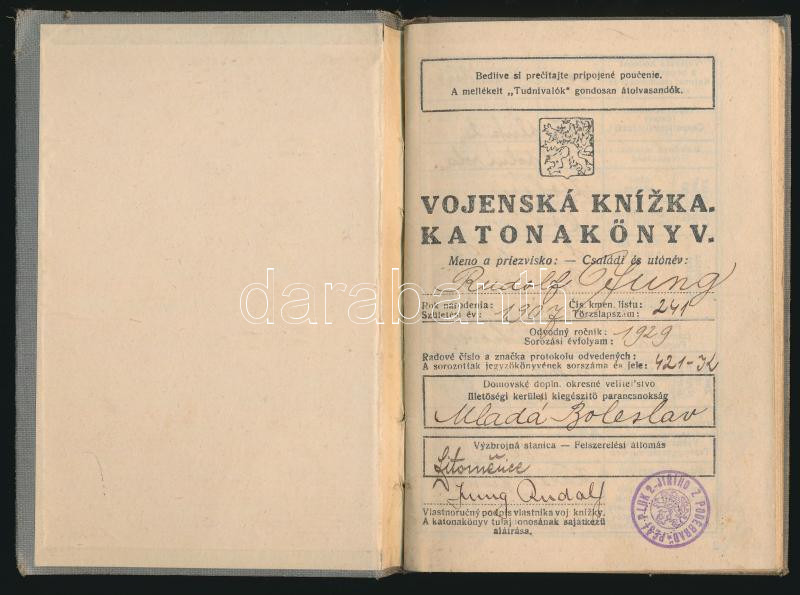 Bedlive si prečítajte pripojené poučenie.
A mellékelt „Tudnivalók" gondosan átolvasandók.
VOJENSKÁ KNÍŽKA.
KATONAKÖNYV.
Meno a priezvisko: — Családi és utónév:
Rudolf Jung
darabanth
Rok narodenia: Čís. kmen. listu:
Születési év: 1907 Törzslapszám: 241
Odvodný ročník:
Sorozási évfolyam: 1929
Radové číslo a značka protokolu odvedených:
A sorozottak jegyzőkönyvének sorszáma és jele: 421-JK
Domovské dopln. okresné veliteľstvo
Illetőségi kerületi kiegészítő parancsnokság
Mladá Boleslav
Výzbrojná stanica — Felszerelési állomás
Litoměřice
Jung Rudolf
Vlastnoručný podpis vlastníka voj. knížky.
A katonakönyv tulajdonosának sajátkezű
aláírása.
PĚŠÍ PLUK 2 JIŘÍHO Z PODĚBRAD